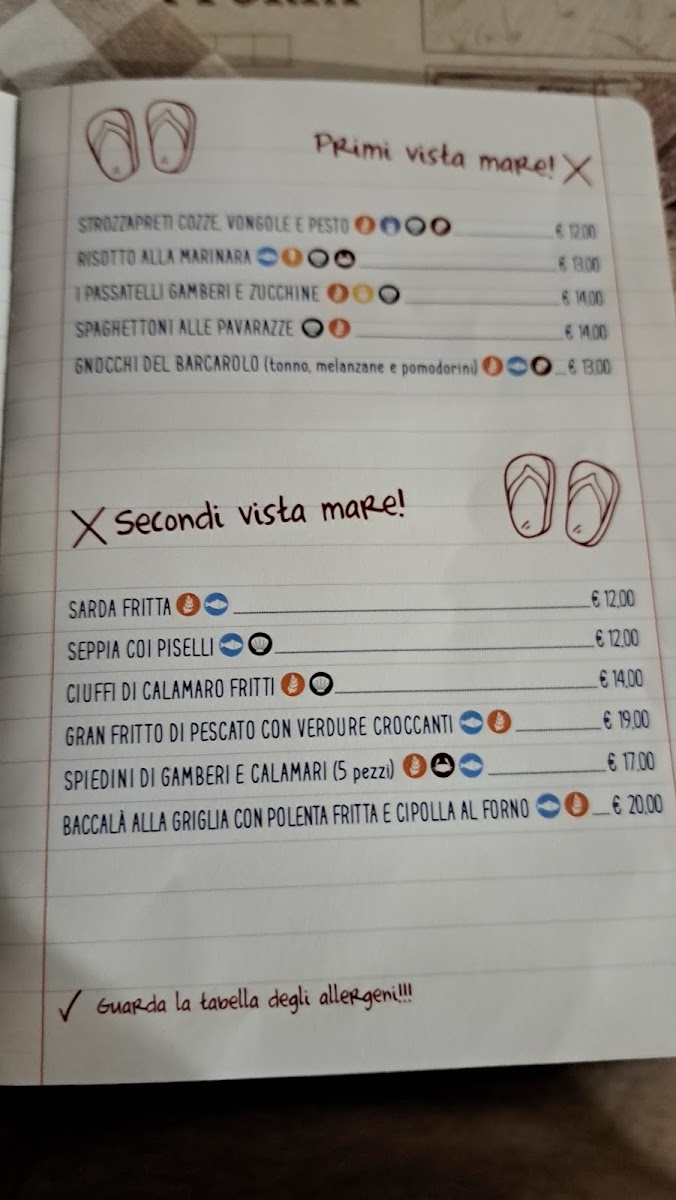 Primi vista mare!
STROZZAPRETI COZZE, VONGOLE E PESTO € 12,00
RISOTTO ALLA MARINARA € 13,00
I PASSATELLI GAMBERI E ZUCCHINE € 14,00
SPAGHETTONI ALLE PAVARAZZE € 14,00
GNOCCHI DEL BARCAROLO (tonno, melanzane e pomodorini) € 13,00
Secondi vista mare!
SARDA FRITTA € 12,00
SEPPIA COI PISELLI € 12,00
CIUFFI DI CALAMARO FRITTI € 14,00
GRAN FRITTO DI PESCATO CON VERDURE CROCCANTI € 19,00
SPIEDINI DI GAMBERI E CALAMARI (5 pezzi) € 17,00
BACCALÀ ALLA GRIGLIA CON POLENTA FRITTA E CIPOLLA AL FORNO € 20,00
Guarda la tabella degli allergeni!!!